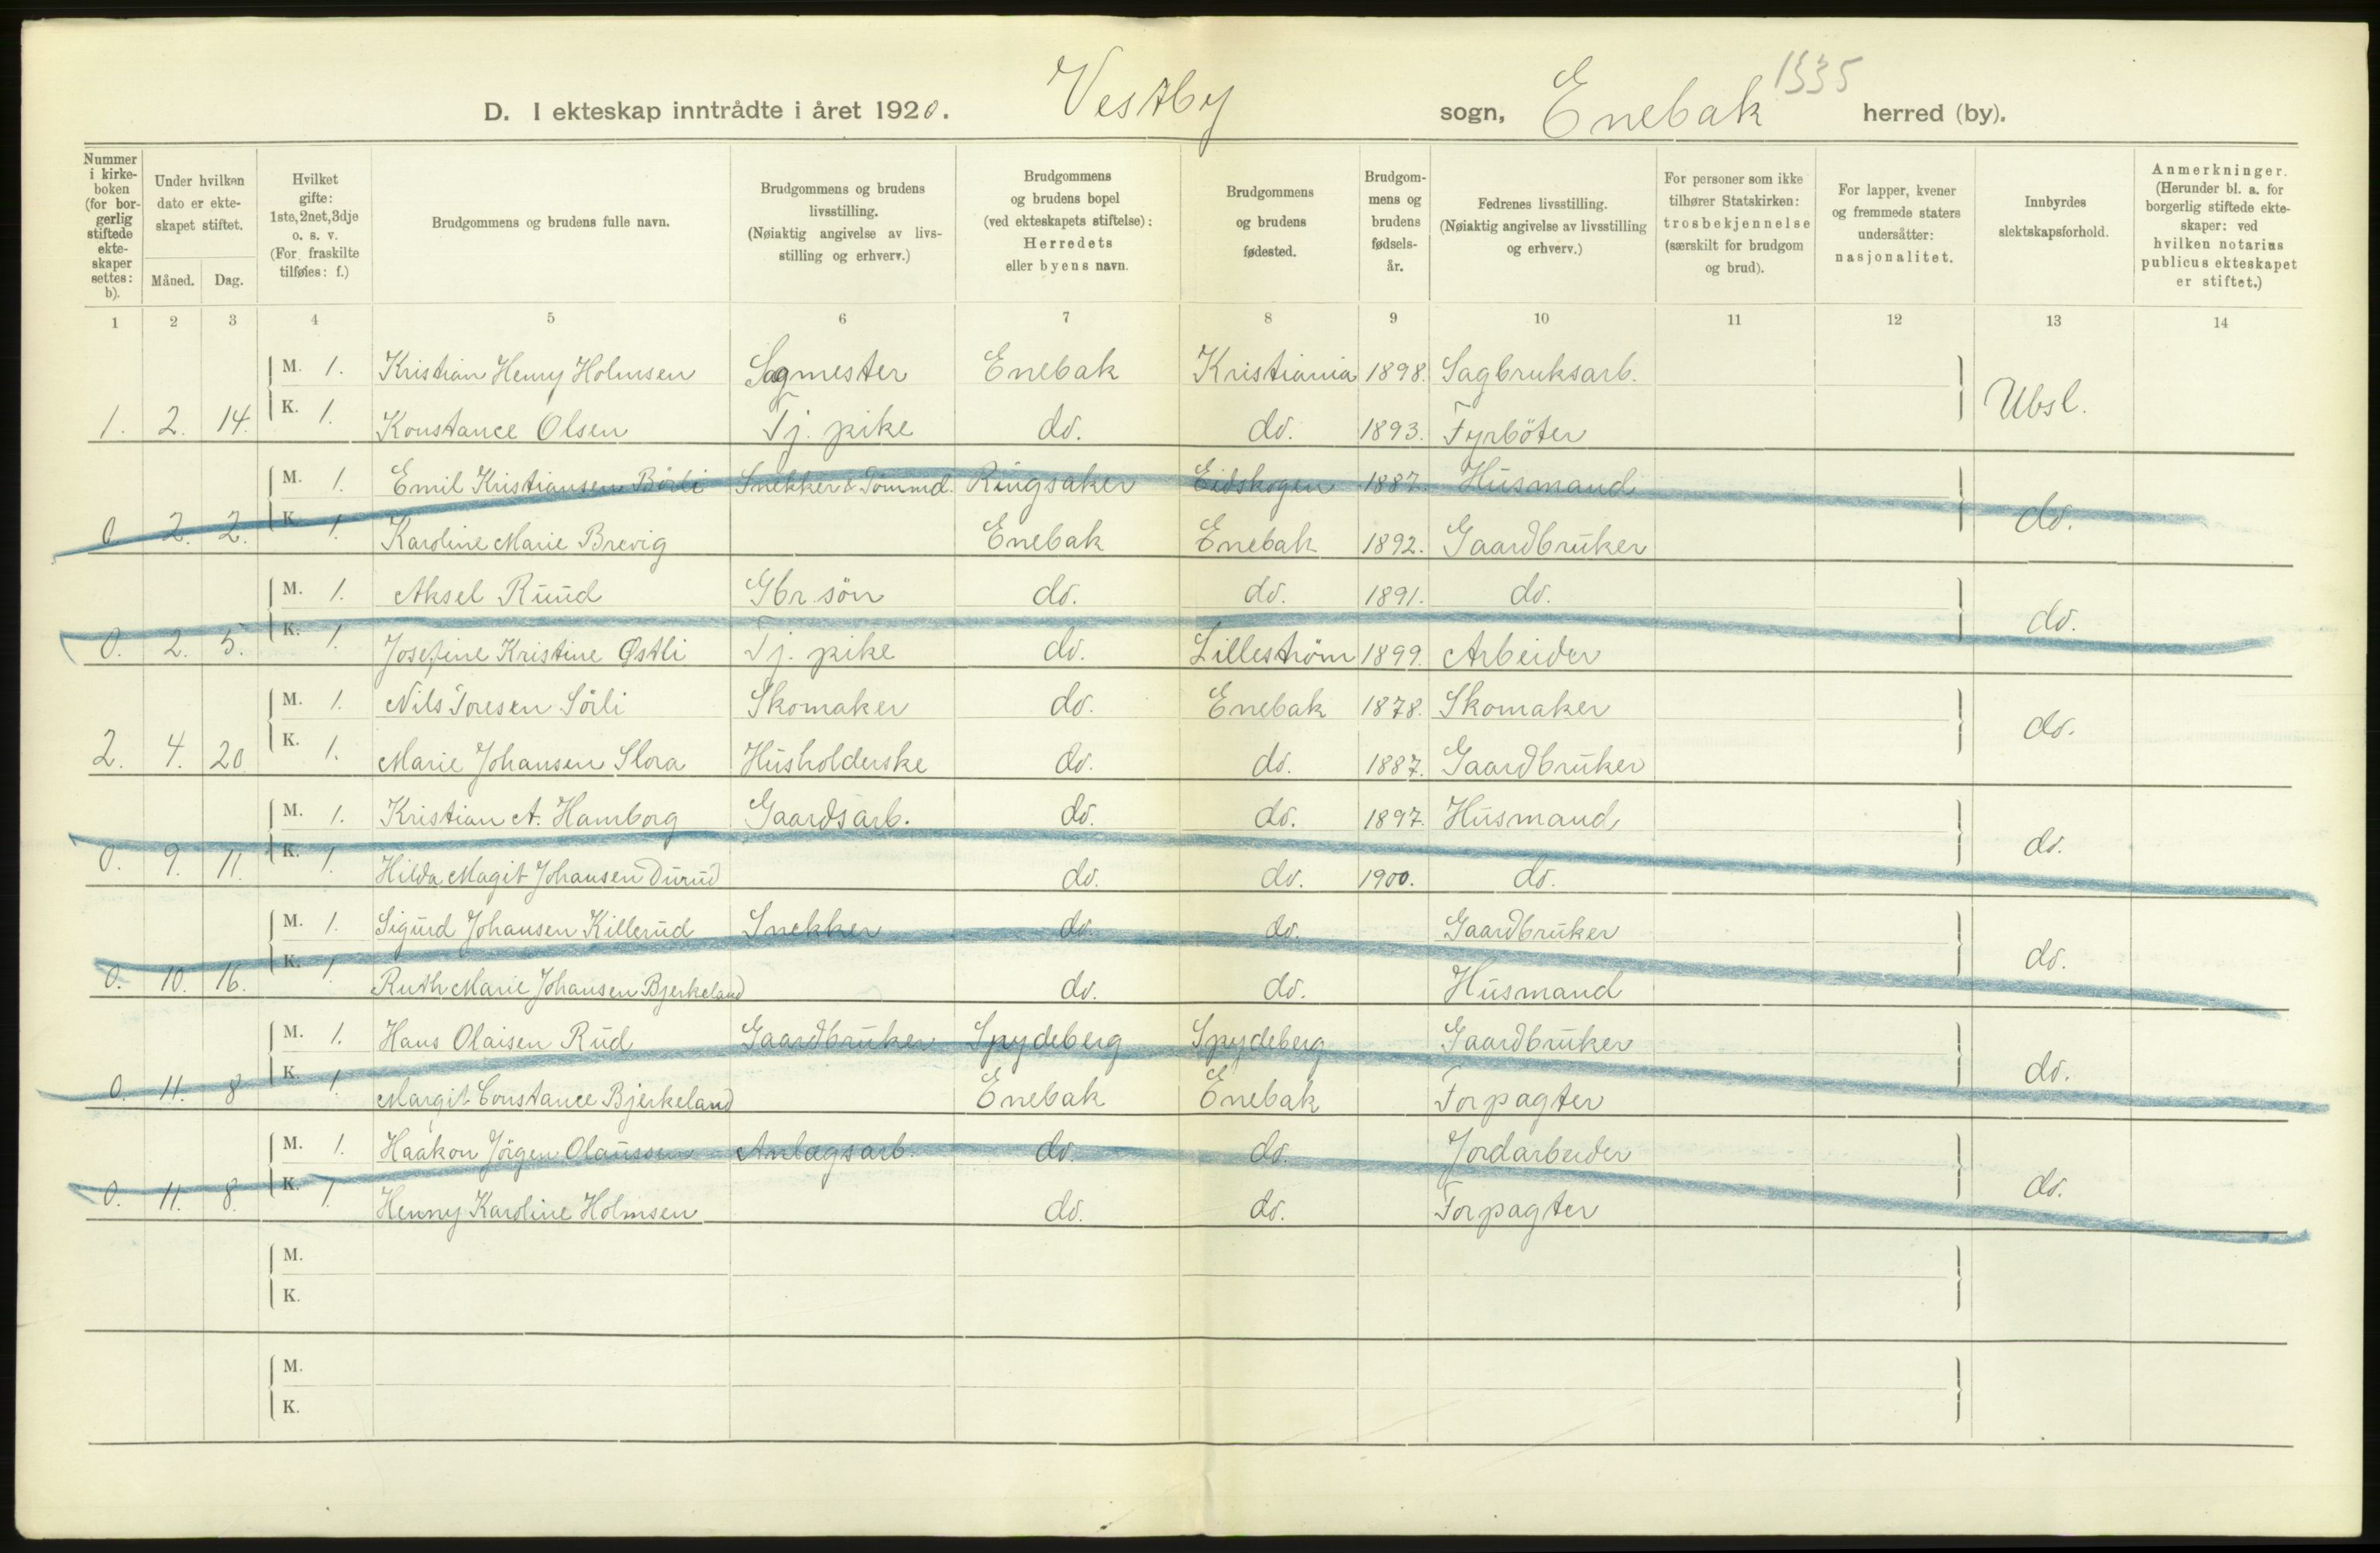 1335
D. I ekteskap inntrådte i året 1920. Vestby sogn, Enebak herred (by).
Nummer i kirke-boken (for bor-gerlig stiftede ekte-skaper settes: b).
Under hvilken dato er ekte-skapet stiftet.
Måned.
Dag.
Hvilket gifte: 1ste, 2net, 3dje o. s. v. (For fraskilte tilføies: f.)
Brudgommens og brudens fulle navn.
Brudgommens og brudens livsstilling. (Nøiaktig angivelse av livs-stilling og erhverv.)
Brudgommens og brudens bopel (ved ekteskapets stiftelse): Herredets eller byens navn.
Brudgommens og brudens fødested.
Brudgom-mens og brudens fødsels-år.
Fedrenes livsstilling. (Nøiaktig angivelse av livsstilling og erhverv.)
For personer som ikke tilhører Statskirken: trosbekjennelse (særskilt for brudgom og brud).
For lapper, kvener og fremmede staters undersåtter: nasjonalitet.
Innbyrdes slektskapsforhold.
Anmerkninger. (Herunder bl. a. for borgerlig stiftede ekte-skaper: ved hvilken notarius publicus ekteskapet er stiftet.)
1 2 3 4 5 6 7 8 9 10 11 12 13 14
M. 1. Kristian Henry Holmsen Sagmester Enebak Kristiania 1898. Sagbruksarb. Ubsl.
1. 2. 14. K. 1. Konstance Olsen Tj. pike do. do. 1893. Fyrböter
M. 1. Emil Kristiansen Börli Snekker & Tömmd. Ringsaker Eidskogen 1887. Husmand do.
0 2. 2. K. 1. Karoline Marie Brevig Enebak Enebak 1892. Gaardbruker
M. 1. Aksel Ruud Gbr sön do. do. 1891. do. do.
0. 2. 5. K. 1. Josefine Kristine Østli Tj. pike do. Lilleström 1899. Arbeider
M. 1. Nils Toresen Sörli Skomaker do. Enebak 1878. Skomaker do.
2. 4. 20. K. 1. Marie Johansen Slora Husholderske do. do. 1887. Gaardbruker
M. 1. Kristian A. Hamborg Gaardsarb. do. do. 1897. Husmand do.
0. 9. 11. K. 1. Hilda Magit Johansen Durud do. do. 1900. do.
M. 1. Sigurd Johansen Killerud Snekker do. do. Gaardbruker do.
0. 10. 16. K. 1. Ruth Marie Johansen Bjerkeland do. do. Husmand
M. 1. Hans Olaisen Rud Gaardbruker Spydeberg Spydeberg Gaardbruker do.
0. 11. 8 K. 1. Margit Constance Bjerkeland Enebak Enebak Forpagter
M. 1. Haakon Jörgen Olaussen Anlægsarb. do. do. Jordarbeider do.
0. 11. 8. K. 1. Henny Karoline Holmsen do. do. Forpagter
M.
K.
M.
K.